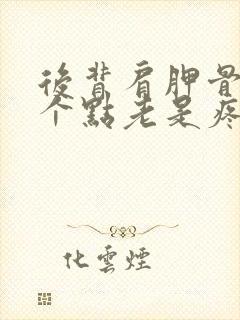 後背肩胛骨
个點老是疼
化雲煙